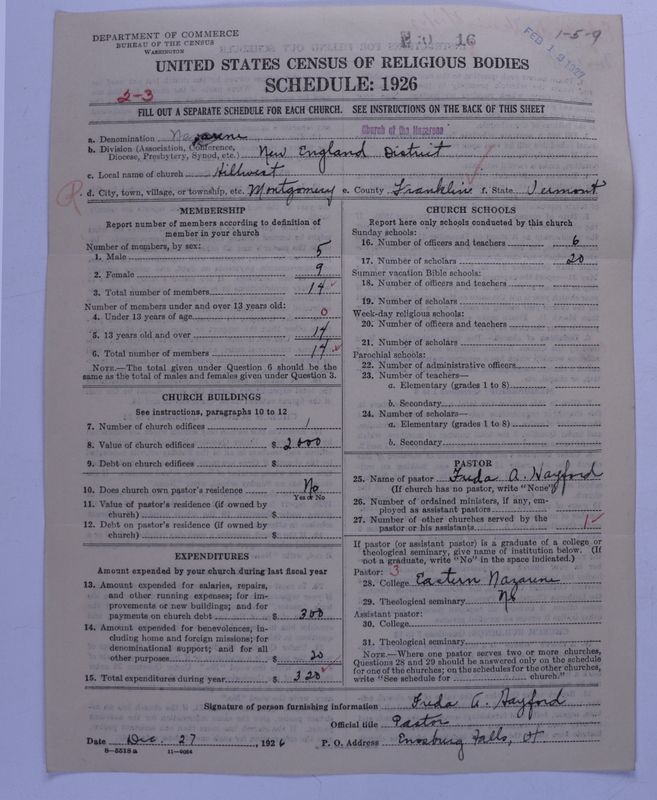 DEPARTMENT OF COMMERCE
BUREAU OF THE CENSUS
WASHINGTON
16
1-5-9
FEB 1 1927
UNITED STATES CENSUS OF RELIGIOUS BODIES
SCHEDULE: 1926
2-3
FILL OUT A SEPARATE SCHEDULE FOR EACH CHURCH. SEE INSTRUCTIONS ON THE BACK OF THIS SHEET
a. Denomination Nazarene Church of the Nazarene
b. Division (Association, Conference, Diocese, Presbytery, Synod, etc.) New England District
c. Local name of church Hillwest
R. d. City, town, village, or township, etc. Montgomery e. County Franklin f. State Vermont
MEMBERSHIP
Report number of members according to definition of
member in your church
Number of members, by sex:
1. Male 5
2. Female 9
3. Total number of members 14
Number of members under and over 13 years old:
4. Under 13 years of age 0
5. 13 years old and over 14
6. Total number of members 14
NOTE.—The total given under Question 6 should be
same as the total of males and females given under Question 3.
CHURCH BUILDINGS
See instructions, paragraphs 10 to 12
7. Number of church edifices 1
8. Value of church edifices $ 2000
9. Debt on church edifices $
10. Does church own pastor's residence No
Yes or No
11. Value of pastor's residence (if owned by
church) $
12. Debt on pastor's residence (if owned by
church) $
EXPENDITURES
Amount expended by your church during last fiscal year
13. Amount expended for salaries, repairs,
and other running expenses; for im-
provements or new buildings; and for
payments on church debt $ 300
14. Amount expended for benevolences, in-
cluding home and foreign missions; for
denominational support; and for all
other purposes $ 20
15. Total expenditures during year $ 320
CHURCH SCHOOLS
Report here only schools conducted by this church
Sunday schools:
16. Number of officers and teachers 6
17. Number of scholars 20
Summer vacation Bible schools:
18. Number of officers and teachers
19. Number of scholars
Week-day religious schools:
20. Number of officers and teachers
21. Number of scholars
Parochial schools:
22. Number of administrative officers
23. Number of teachers—
a. Elementary (grades 1 to 8)
b. Secondary
24. Number of scholars—
a. Elementary (grades 1 to 8)
b. Secondary
PASTOR
25. Name of pastor Freda A. Hayford
(If church has no pastor, write "None")
26. Number of ordained ministers, if any, em-
ployed as assistant pastors
27. Number of other churches served by the
pastor or his assistants 1
If pastor (or assistant pastor) is a graduate of a college or
theological seminary, give name of institution below. (If
not a graduate, write "No" in the space indicated.)
Pastor: 3
28. College Eastern Nazarene
29. Theological seminary No
Assistant pastor:
30. College
31. Theological seminary
NOTE.—Where one pastor serves two or more churches,
Questions 28 and 29 should be answered only on the schedule
for one of the churches; on the schedules for the other churches,
write "See schedule for church."
Signature of person furnishing information Freda A. Hayford
Official title Pastor
Date Dec. 27, 1926 P. O. Address Enosburg Falls, Vt
8-5518 a 11-9064